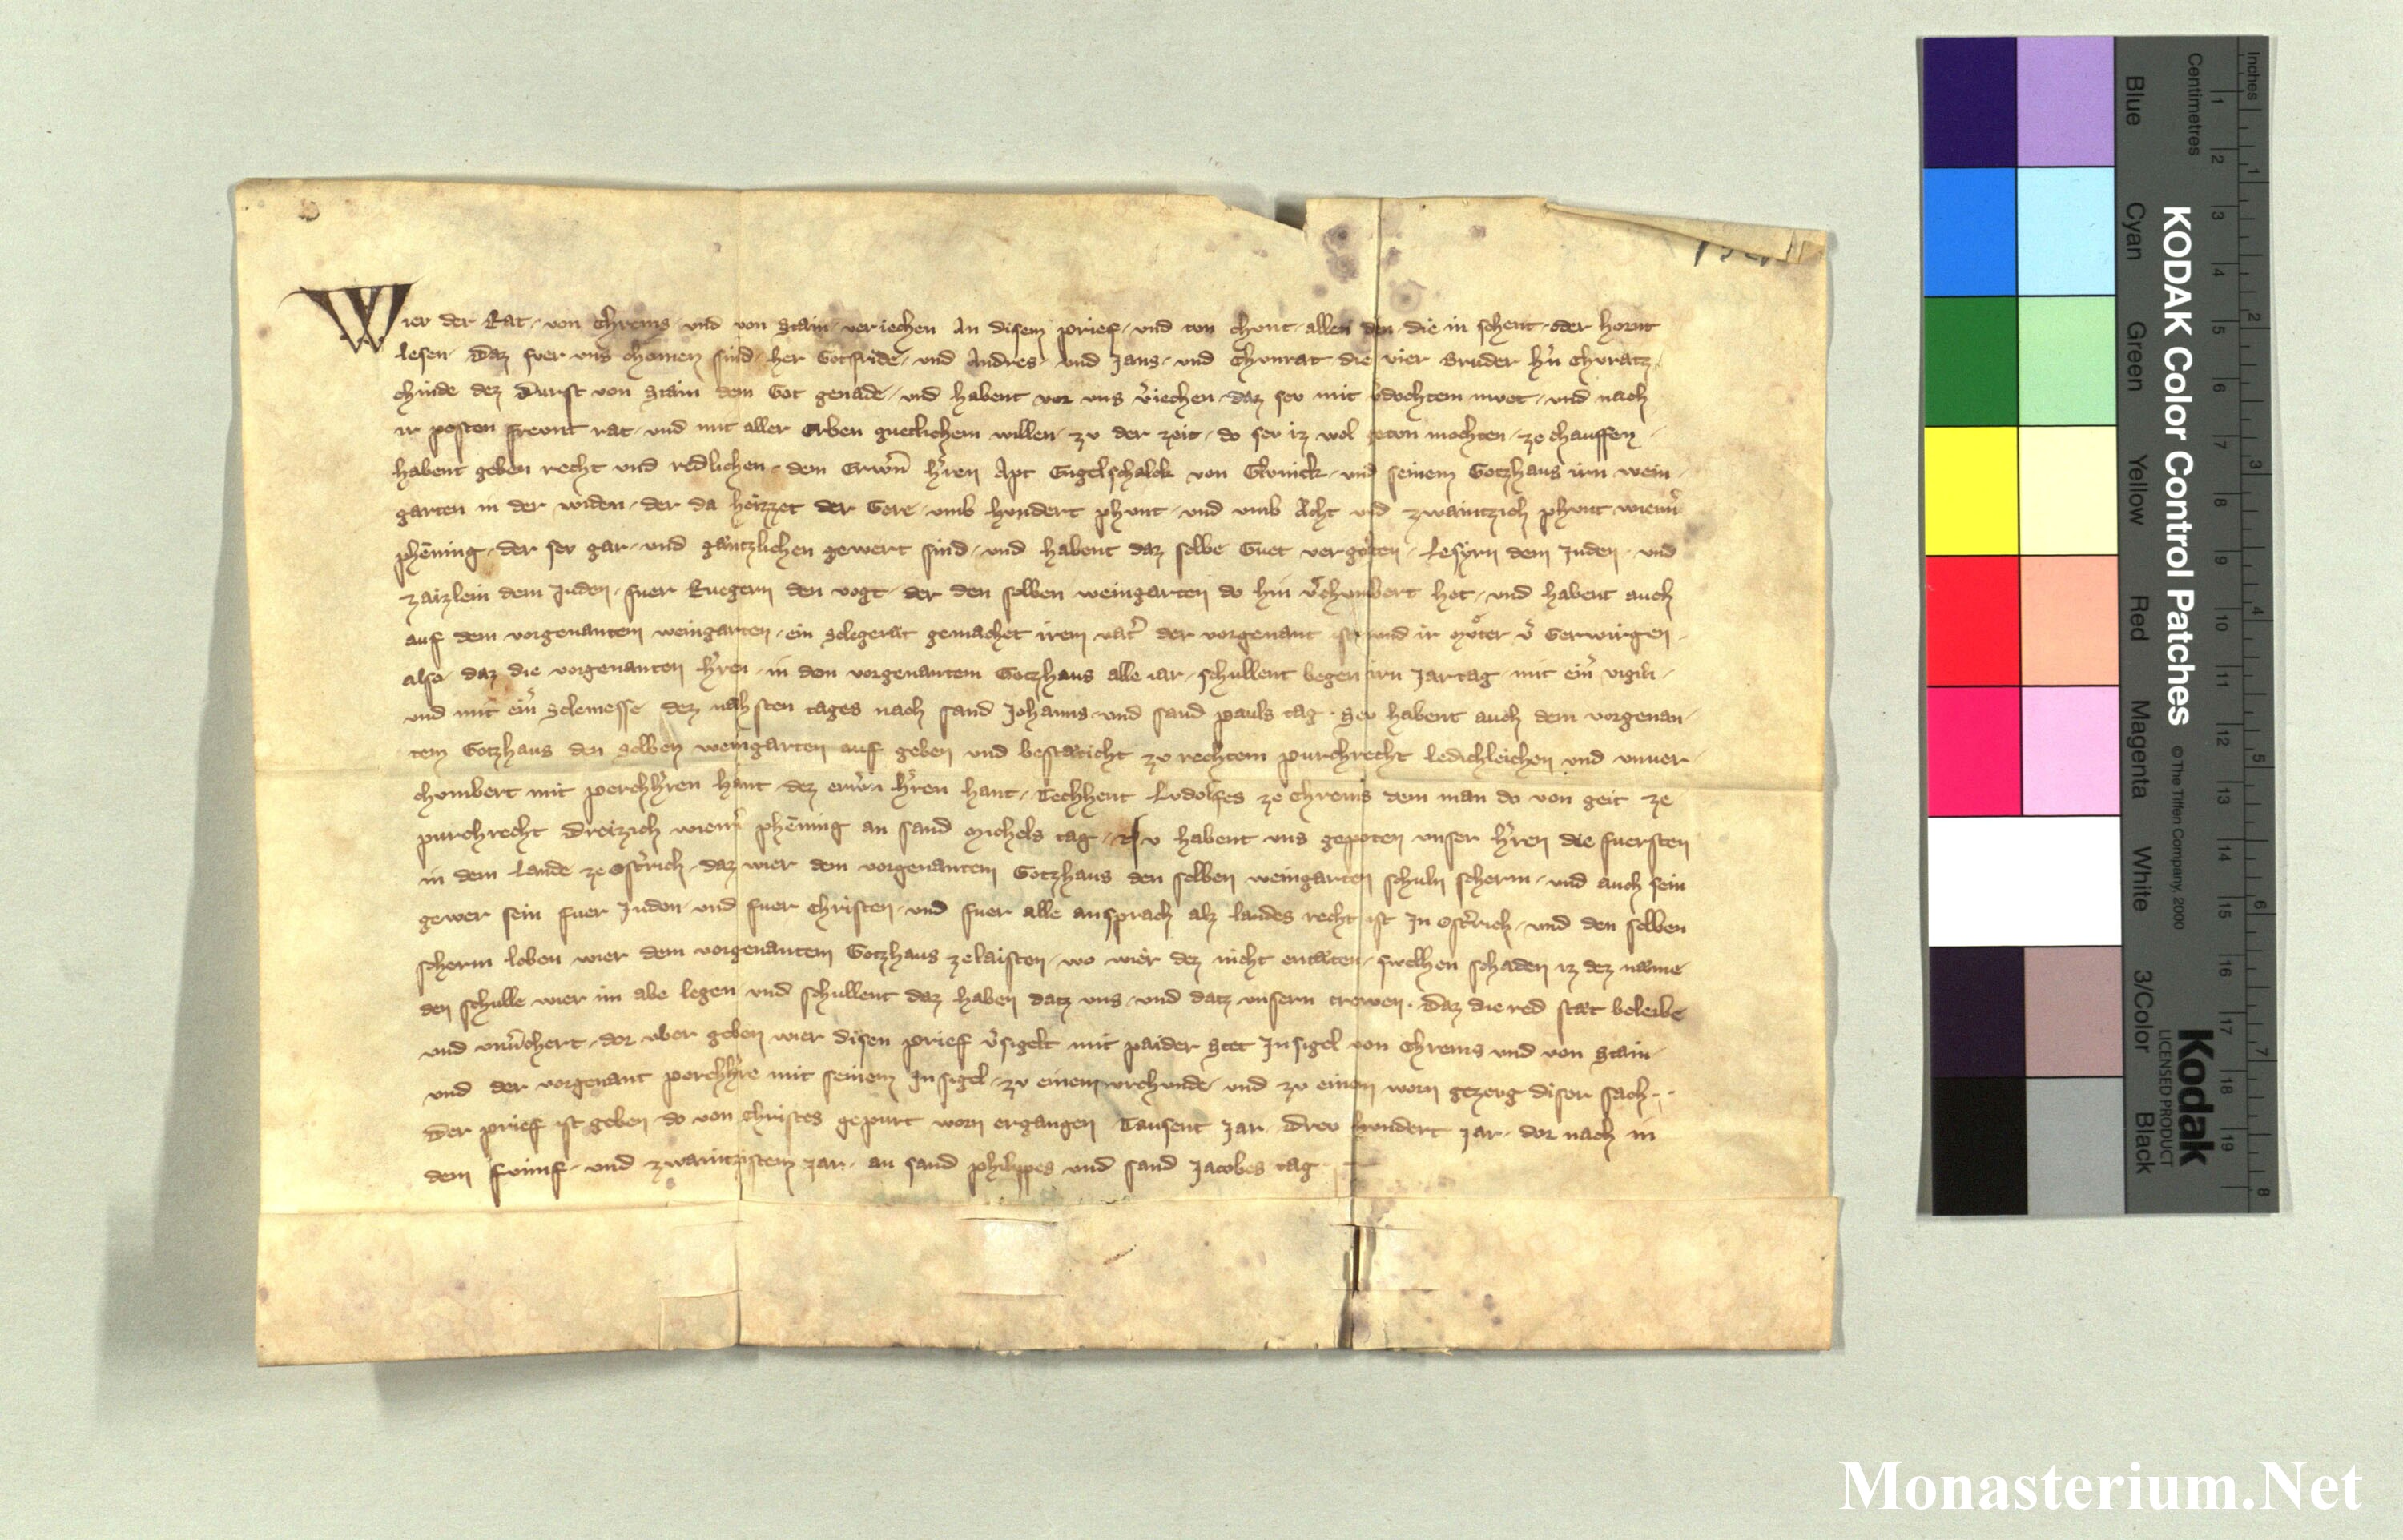 Wier der Rat von Chrems und von Stain veriechen an disem prief und tun chunt allen den die in sehent oder hornt
lesen Daz fuer uns chomen sind her Gotfride und Andres und Jans und Chunrat die vier Bruder hern Chunratz
chinde dez Durst von Stain dem Got genade und habent vor uns v̾iechen daz sev mit v̾dachtem muet und nach
ir pesten freunt rat und mit aller Erben guetlichem willen zu der zeit do sev iz wol getun mochten ze chauffen
habent geben recht und redlichen dem Erwn̄ hr̾en Apt Engelschalck von und seinem Gotzhaus irn wein
garten in der widen der da heizzet der Gere umb hundert phunt und umb Acht und zwaintzich phunt wienn̾
phēning der sev gar und gantzlichen gewert sind und habent daz selbe Guet vergolten Lesyrn dem Juden und
zaizlein dem Juden fuer Ruegern den vogt der den selben weingarten do hin v̾chumbert het und habent auch
auf dem vorgenantem weingarten ein selegerat gemachet irem vat̾ der vorgenant ist und ir muoter v̾ Gerwirgen
also daz die vorgenanten hr̾en in dem vorgenantem Gotzhaus alle iar schullent begen irn Jartag mit ein̾ vigili
und mit ein̾ selemesse dez nahsten tages nach sand Johanns und sand pauls tag Sev habent auch dem vorgenan
tem Gotzhaus den selben weingarten auf geben und bestaeticht zu rechtem purchrecht ledichleichen und unuer
chumbert mit perchhr̾en hant dez erw̾n hr̾en hant Techhent Ludolfes ze Chrems dem man do von geit ze
purchrecht dreizzich wienn̾ phēning an sand Michels tag Nu habent uns gepoten unser hr̾en die fuersten
in dem Lande ze Ost̾rich daz wier dem vorgenantem Gotzhaus den selben weingarten schuln scherm und auch sein
gewer sein fuer Juden und fuer Christen und fuer alle ansprach alz landes recht ist In Ost̾rich und den selben
scherm loben wier dem vorgenantem Gotzhaus ze laisten wo wier dez nicht entaeten swelhen schaden iz dez naeme
den schulle wier im abe legen und schullent daz haben datz uns und datz unsern trewen Daz die red staet beleibe
und unv̾chert dor uber geben wier disen prief v̾sigelt mit paider Stet Insigel von Chrems und von Stain
und der vorgenant perchhr̾re mit seinem Insigel zu einem urchunde und zu einem worn gezeug diser sach
Der prief ist geben do von Christes gepurt worn ergangen Tausent Jar Dreu hundert Jar dor nach in
dem fuimf und zwaintzistem Jar an sand philippes und sand Jacobes tag
Inches
Centimetres
1 2 3 4 5 6 7 8
1 2 3 4 5 6 7 8 9 10 11 12 13 14 15 16 17 18 19
KODAK Color Control Patches
© The Tiffen Company, 2000
Kodak
LICENSED PRODUCT
Blue Cyan Green Yellow Red Magenta White 3/Color Black
Monasterium.Net